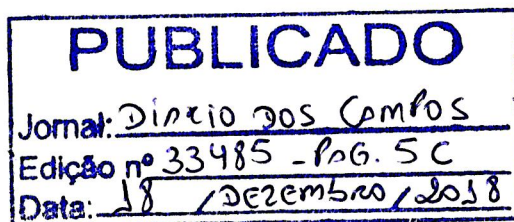 PUBLICADO
Jornal: DIARIO DOS CAMPOS
Edição nº 33485 - PAG. 5C
Data: 18 / DEZEMBRO / 2018